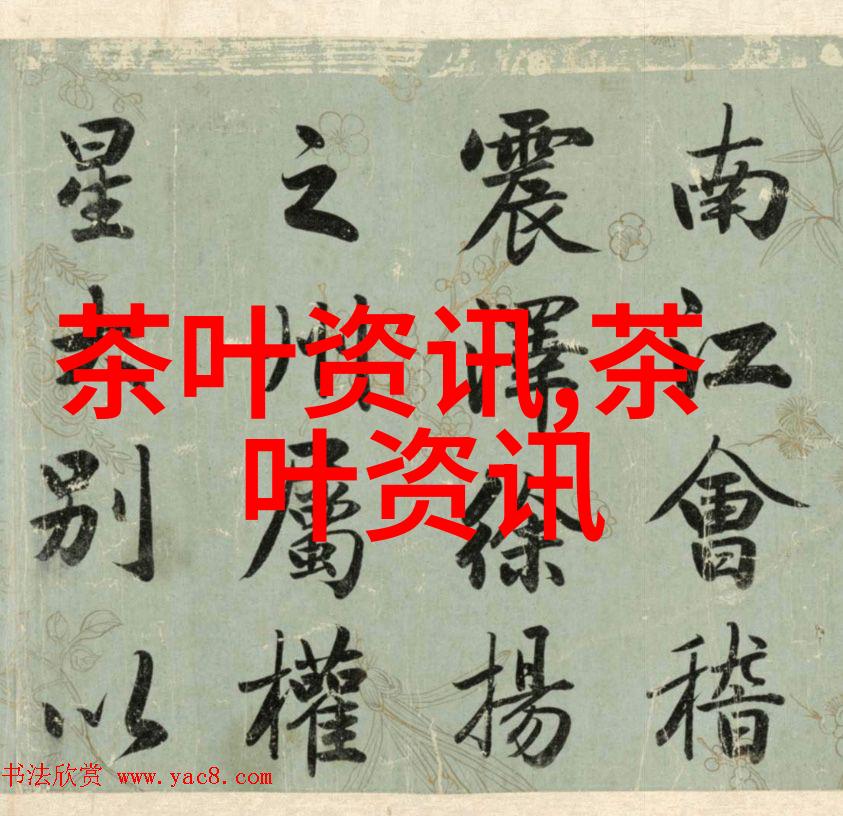 南江會稽
震澤徐揚
之州屬權
星別以
茶叶资讯,茶
叶资讯
书法欣赏 www.yac8.com